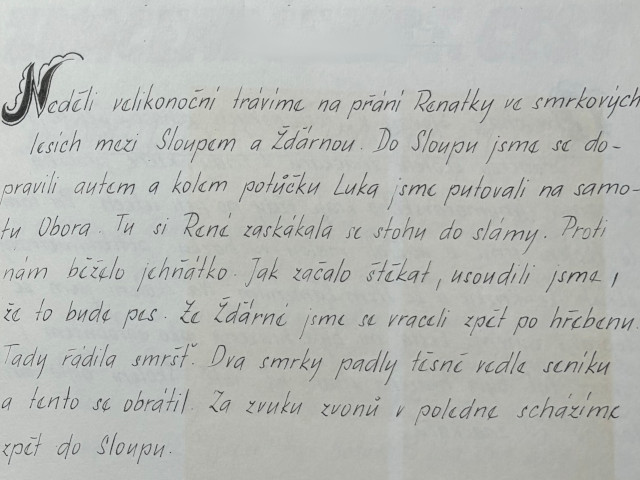 Neděli velikonoční trávíme na přání Renatky ve smrkových
lesích mezi Sloupem a Žďárnou. Do Sloupu jsme se do-
pravili autem a kolem potůčku Luka jsme putovali na samo-
tu Obora. Tu si René zaskákala se stohu do slámy. Proti
nám běželo jehňátko. Jak začalo štěkat, usoudili jsme,
že to bude pes. Ze Žďárné jsme se vraceli zpět po hřebenu.
Tady řádila smršť. Dva smrky padly těsně vedle seníku
a tento se obrátil. Za zvuku zvonů v poledne scházíme
zpět do Sloupu.